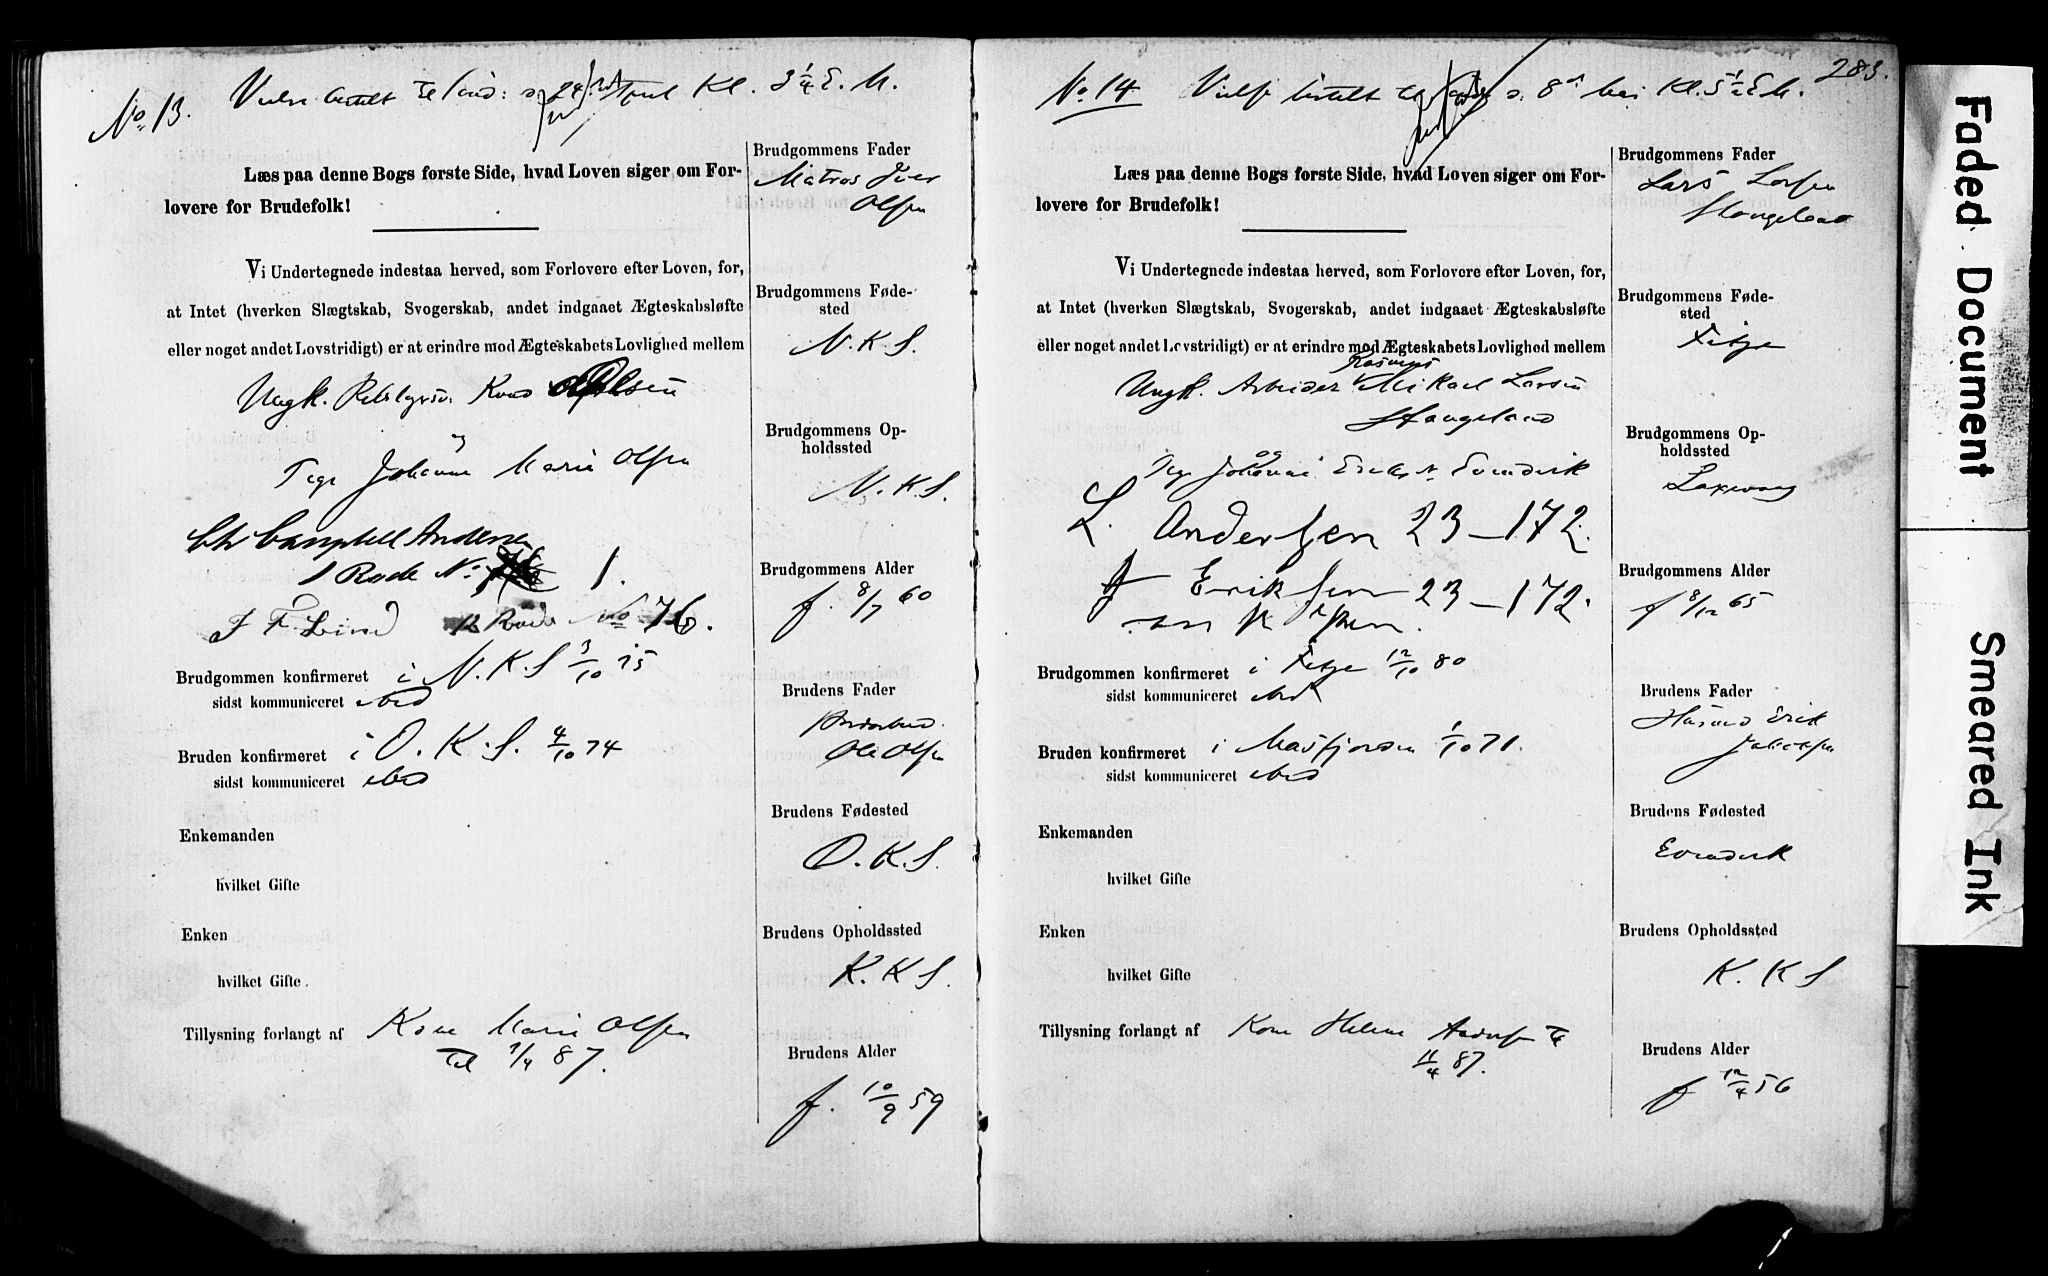 No 13. Kl. 3 1/4 E. M.
Læs paa denne Bogs første Side, hvad Loven siger om For-
lovere for Brudefolk!
Vi Undertegnede indestaa herved, som Forlovere efter Loven, for,
at Intet (hverken Slægtskab, Svogerskab, andet indgaaet Ægteskabsløfte
eller noget andet Lovstridigt) er at erindre mod Ægteskabets Lovlighed mellem
Ungk. Knud
og
Pige Johanne Marie Olsen
Chr Campbell Andersen
1 Rode No 1.
J F Lind 12 Rode No 76.
Brudgommen konfirmeret i N. K. S 3/10 75
sidst kommuniceret ibid
Bruden konfirmeret i D. K. S. 4/10 74
sidst kommuniceret ibid
Enkemanden
hvilket Gifte
Enken
hvilket Gifte.
Tillysning forlangt af Kone Marie Olsen
Til 1/4 87.
Brudgommens Fader
Matros Iver
Olsen
Brudgommens Føde-
sted
N. K. S.
Brudgommens Op-
holdssted
N. K. S.
Brudgommens Alder
f. 8/7 60
Brudens Fader
Ole Olsen
Brudens Fødested
D. K. S.
Brudens Opholdssted
K. K. S.
Brudens Alder
f. 10/9 59
283.
No 14 Kl. 5 1/2 E M.
Læs paa denne Bogs første Side, hvad Loven siger om For-
lovere for Brudefolk!
Vi Undertegnede indestaa herved, som Forlovere efter Loven, for,
at Intet (hverken Slægtskab, Svogerskab, andet indgaaet Ægteskabsløfte
eller noget andet Lovstridigt) er at erindre mod Ægteskabets Lovlighed mellem
Rasmus
Ungk. Arbeider Mikael Larsen
Stangeland
og
Pige Johanne
L. Andersen 23 - 172.
Eriksen 23 - 172.
Brudgommen konfirmeret i Fitje 12/10 80
sidst kommuniceret ibid
Bruden konfirmeret i Masfjorden 1/10 71.
sidst kommuniceret ibid
Enkemanden
hvilket Gifte
Enken
hvilket Gifte
Tillysning forlangt af Kone Helene
11/4 87.
Brudgommens Fader
Lars Larsen
Stangeland
Brudgommens Føde-
sted
Fitje
Brudgommens Op-
holdssted
Laxevaag
Brudgommens Alder
f 8/12 65
Brudens Fader
Husmd Erik
Brudens Fødested
Brudens Opholdssted
K. K S
Brudens Alder
f 12/4 56
Faded Document
Smeared Ink